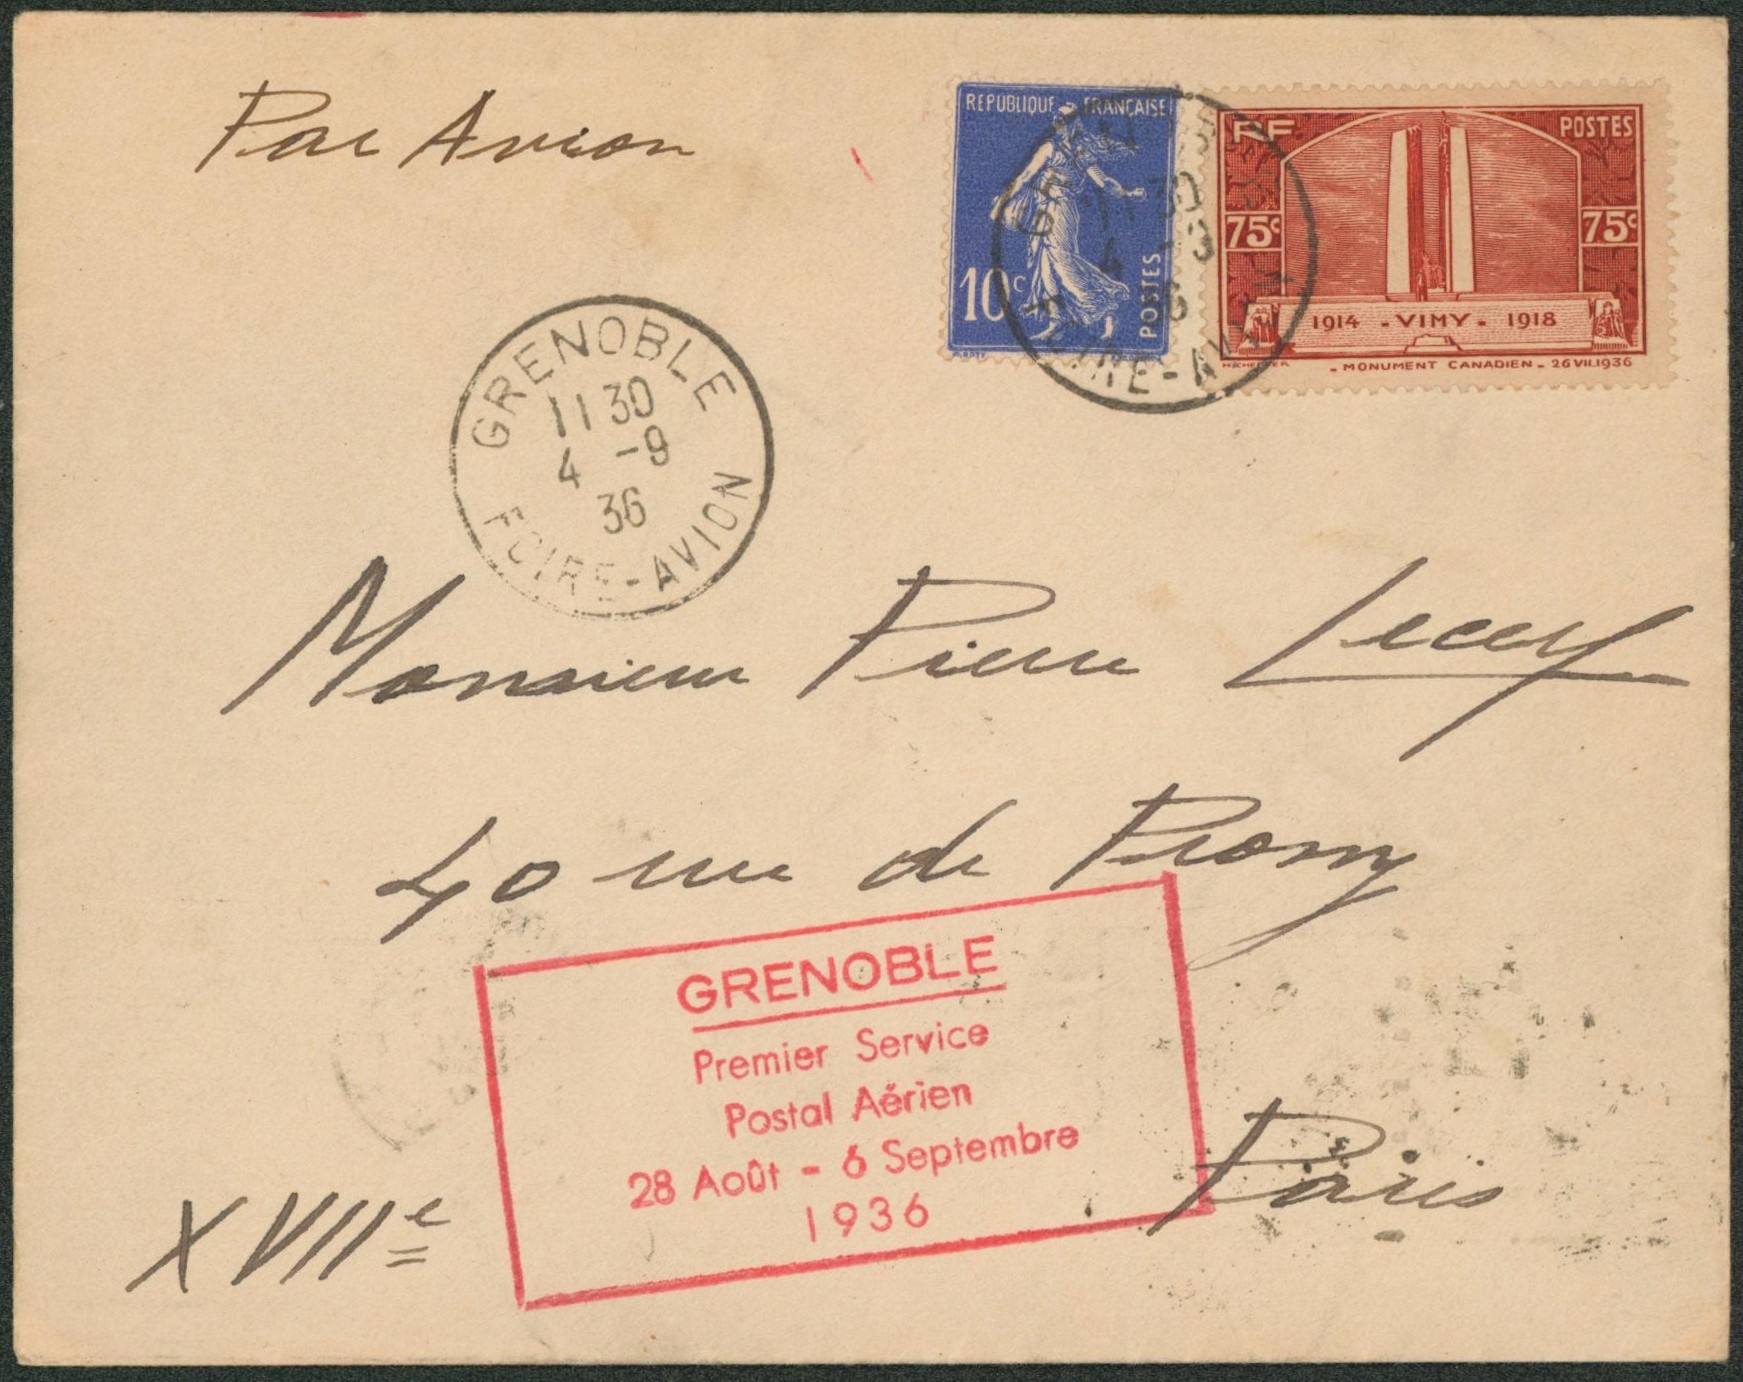 Par Avion
REPUBLIQUE FRANÇAISE
10c
POSTES
RF
POSTES
75c
75c
1914 - VIMY - 1918
- MONUMENT CANADIEN - 26 VII.1936
GRENOBLE
11 30
4 -9
36
FOIRE-AVION
GRENOBLE
11 30
4 -9
36
FOIRE-AVION
Monsieur Pierre
40 rue de Prony
GRENOBLE
Premier Service
Postal Aérien
28 Août - 6 Septembre
1936
Paris
XVIIe